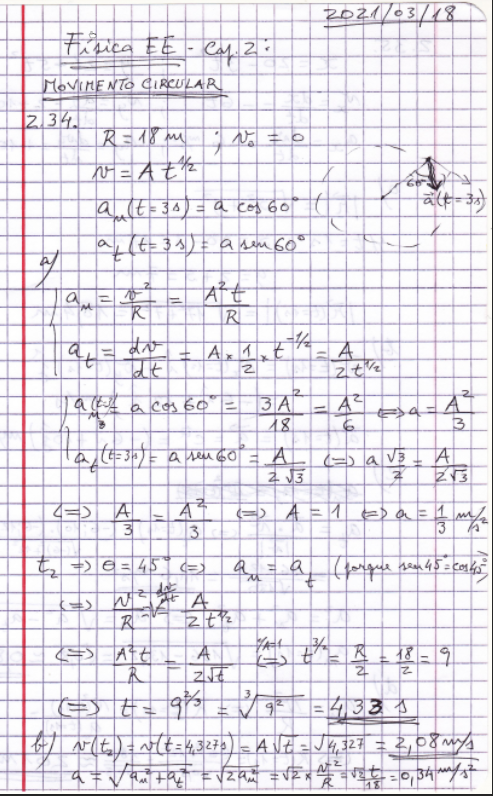 2021/03/18
Física EE - Cap. 2:
MOVIMENTO CIRCULAR
2.34.
R = 18 m ; v₀ = 0
v = A t^1/2
60°
a⃗(t=3s)
aₙ(t=3s) = a cos 60°
aₜ(t=3s) = a sen 60°
a)
aₙ = v²/R = A²t/R
aₜ = dv/dt = A × 1/2 × t^-1/2 = A/2t^1/2
aₙ(t=3) = a cos 60° = 3A²/18 = A²/6 ⇔ a = A²/3
aₜ(t=3s) = a sen 60° = A/2√3 ⇔ a √3/2 = A/2√3
⇔ A/3 = A²/3 ⇔ A = 1 ⇔ a = 1/3 m/s²
t₂ ⇒ θ = 45° ⇔ aₙ = aₜ (porque sen 45° = cos 45°)
⇔ v²/R = dv/dt A/2t^1/2
⇔ A²t/R = A/2√t ⇔ t^3/2 = R/2 = 18/2 = 9
⇔ t = 9^2/3 = ³√9² = 4,33 s
b) v(t₂) = v(t=4,327s) = A√t = √4,327 = 2,08 m/s
a = √aₙ²+aₜ² = √2aₙ² = √2 × v²/R = √2 t/18 = 0,34 m/s²